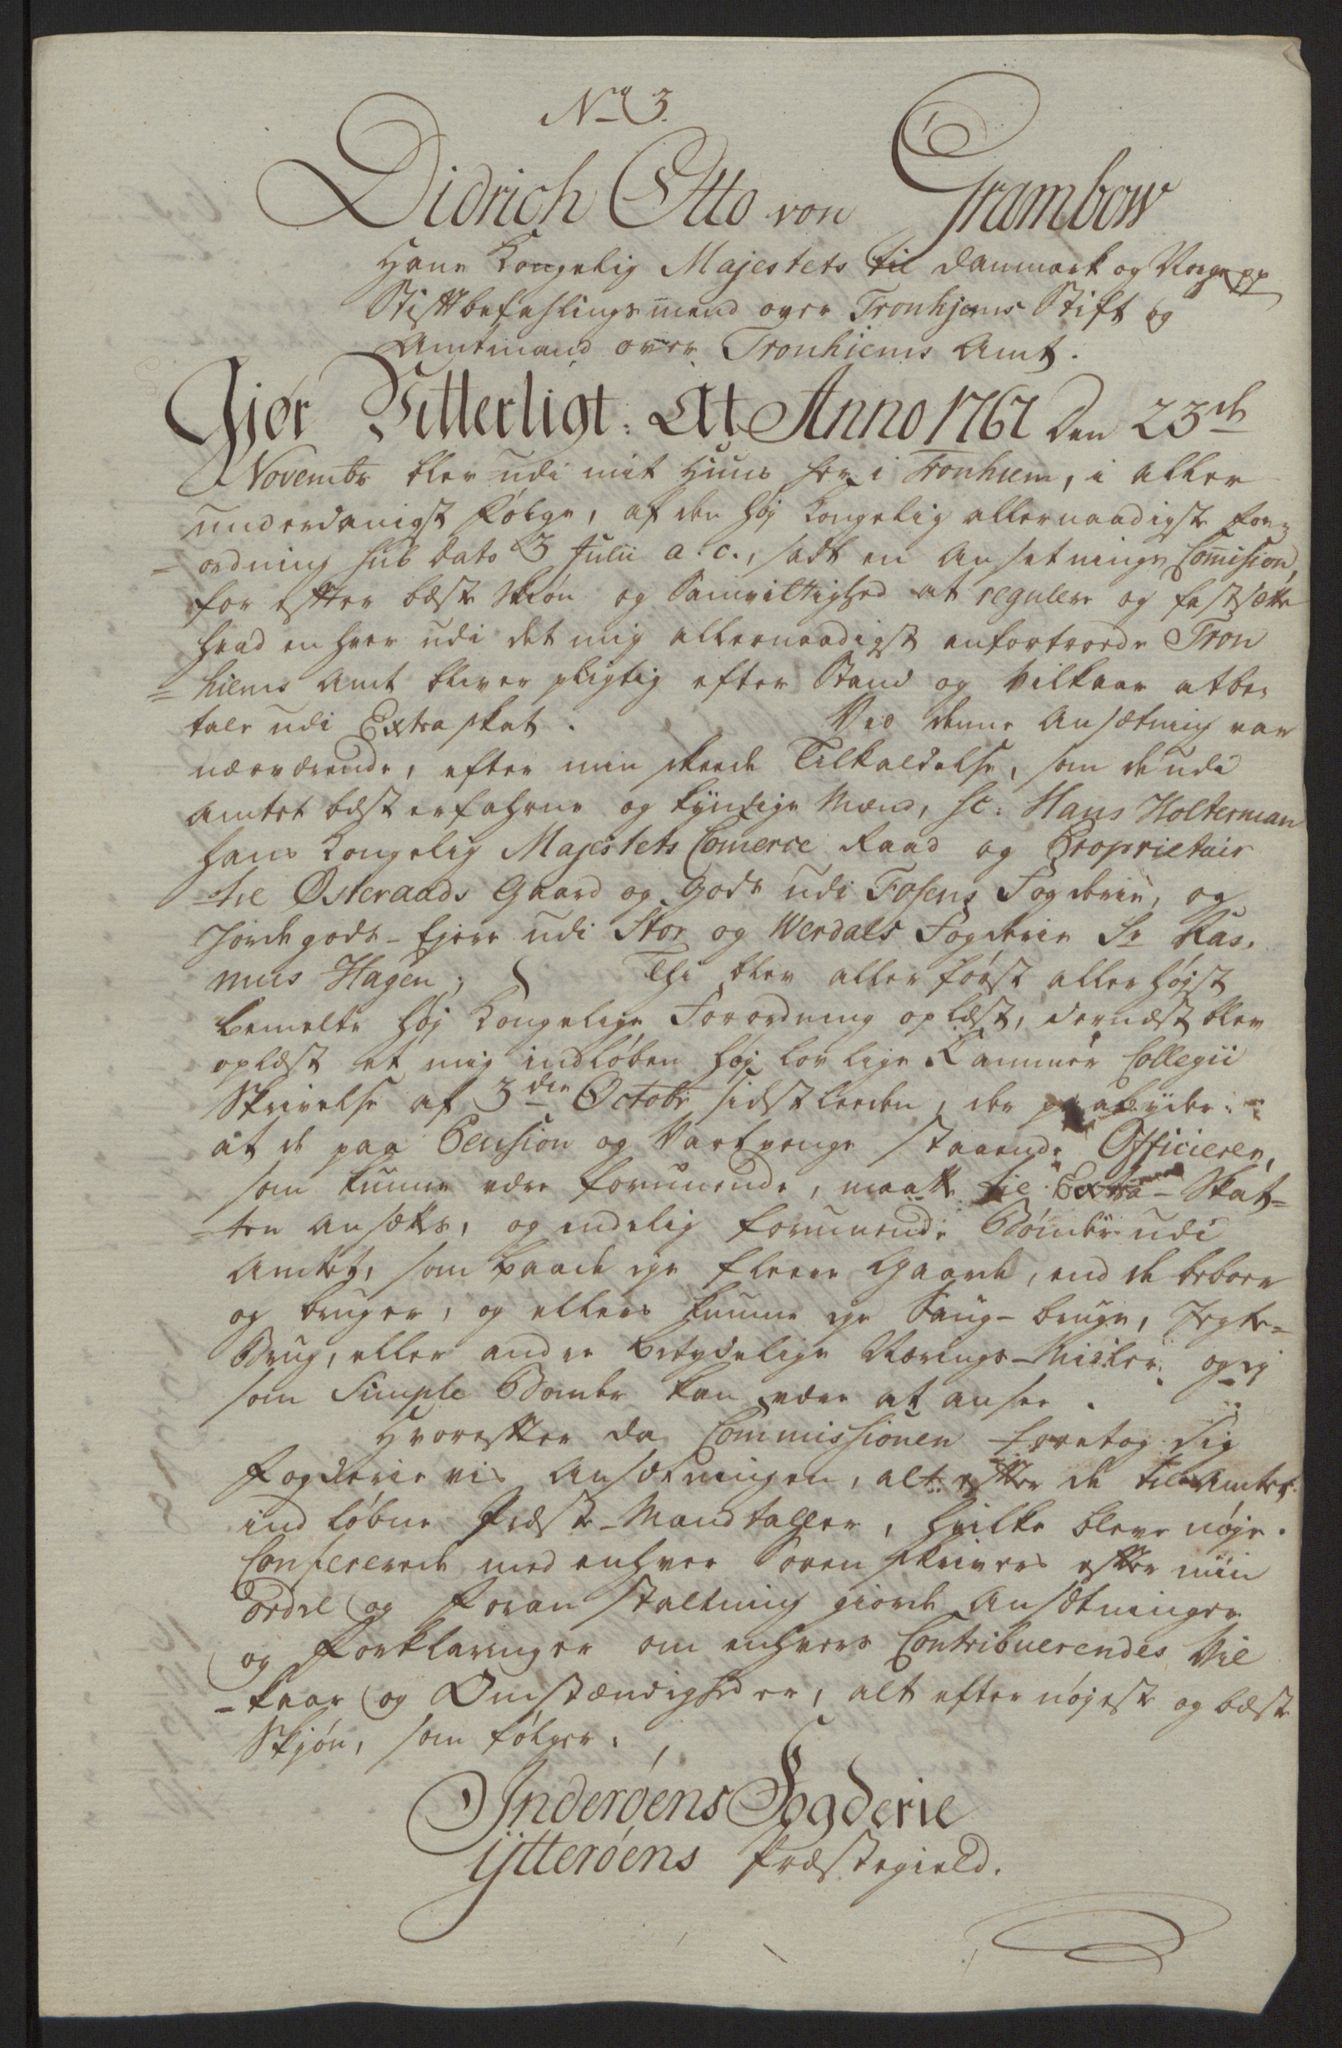 No 3.
Didrich Otto von Grambow
Hans Kongelig Majestets til Danmark og Norge pp
Stiftbefahlingsmand over Tronhjems Stift og
Amtmand over Tronhiems Amt.
Gjør Vitterligt: At Anno 1762 den 23de
Novembr blev udi mit Huus her i Tronhiem, i aller
underdanigst Følge, af den høj Kongelig allernaadigste For„
= ordning sub dato 3 Julii a. c., sadt en Ansetnings Comision,
for efter bæste Skiøn og Samvittighed at regulere og fastsætte
hvad enhver udi det mig allernaadigst anfortroede Tron
= hiems Amt bliver pligtig efter Stand og Vilkaar at be„
tale udi Extraskat. Ved denne Ansætning var
nærværende, efter min skeede Tilkaldelse, som de udi
Amtet bæst erfahrne og kyndige Mænd, sc: Hans Holterman
hans Kongelig Majestets Comerce Raad og Proprietair
til Østeraads Gaard og Gods udi Fosens Fogderie, og
Jordegods-Ejere udi Stør og Werdals Fogderie Sr Ras„
mus Hagen; Thi blev allerførst allerhøjst
bemelte høj Kongelige Forordning oplæst, dernæst blev
oplæst et mig indløben høj lovlige Kammer Collegii
Skrivelse af 3die Octobr sidstleeden, der paabyder
at de paa Pension og Vartpenge staaende Officierer,
som kunne være formuende, maatte til Extra-Skat-
-ten Ansættes, og endelig formuende Bønder udi
Amtet, som baade eje fleere Gaarde, end de beboer
og bruger, og ellers kunne eje Saug-bruge, Jægte-
Brug, eller andre betydelige Nærings-Midler, og ej
som Simple Bønder kan være at ansee.
Hvorefter da Commissionen foretog sig
Fogderie viis Ansætningen, alt efter de til Amtet
indløbne Præste-Mandtaller, hvilke bleve nøje
Confererede med enhver Sorenskrivers efter min
Ordre og Foranstaltning giorde Ansætninger
og Forklaringer om enhvers Contribuerendes Vil
-kaar og Omstændigheder, alt efter nøjeste og bæste
Skjøn, som følger.
Inderøens Fogderie
Ytterøens Præstegield.